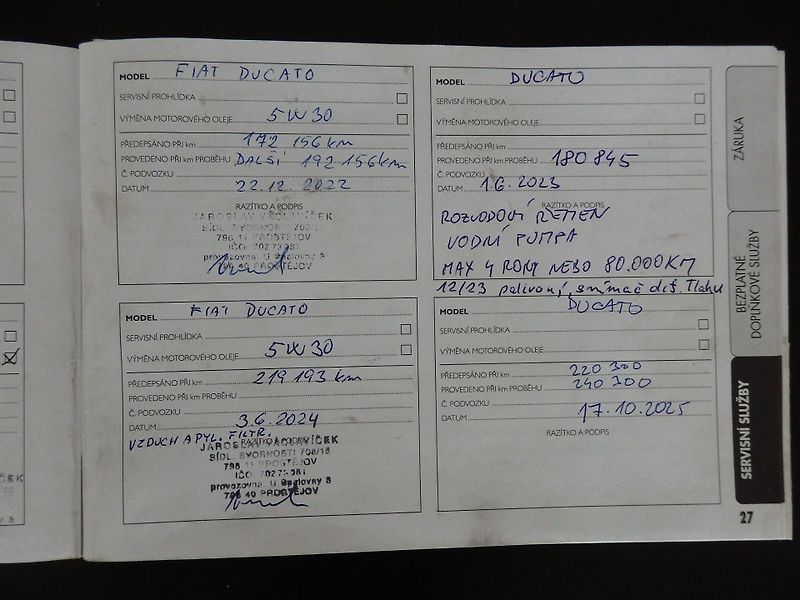 MODEL FIAT DUCATO
SERVISNÍ PROHLÍDKA
VÝMĚNA MOTOROVÉHO OLEJE 5W30
PŘEDEPSÁNO PŘI km 172 156 km
PROVEDENO PŘI km PROBĚHU DALŠÍ 192 156 km
Č. PODVOZKU
DATUM 22.12. 2022
RAZÍTKO A PODPIS
JAROSLAV VÁCLAVÍČEK
SÍDL. SVORNOSTI
796 11 PROSTĚJOV
IČO: 70273081
provozovna: U Spalovny 3
PROSTĚJOV
MODEL DUCATO
SERVISNÍ PROHLÍDKA
VÝMĚNA MOTOROVÉHO OLEJE
PŘEDEPSÁNO PŘI km
PROVEDENO PŘI km PROBĚHU 180 845
Č. PODVOZKU
DATUM 1 6. 2023
RAZÍTKO A PODPIS
ROZVODOVÍ ŘEMEN
VODNÍ PUMPA
MAX 4 ROKY NEBO 80.000KM
12/23 palivoví, snímač dif. Tlaku
MODEL FIAT DUCATO
SERVISNÍ PROHLÍDKA
VÝMĚNA MOTOROVÉHO OLEJE 5W30
PŘEDEPSÁNO PŘI km 219 193 km
PROVEDENO PŘI km PROBĚHU
Č. PODVOZKU
DATUM 3.6. 2024
VZDUCH A PYL. FILTR.
RAZÍTKO A PODPIS
JAROSLAV VÁCLAVÍČEK
SÍDL. SVORNOSTI 708/15
796 11 PROSTĚJOV
IČO: 70273081
provozovna: U Spalovny 3
796 40 PROSTĚJOV
MODEL DUCATO
SERVISNÍ PROHLÍDKA
VÝMĚNA MOTOROVÉHO OLEJE
PŘEDEPSÁNO PŘI km 220 300
PROVEDENO PŘI km PROBĚHU 240 300
Č. PODVOZKU
DATUM 17.10.2025
RAZÍTKO A PODPIS
ZÁRUKA
BEZPLATNÉ
DOPLŇKOVÉ SLUŽBY
SERVISNÍ SLUŽBY
27